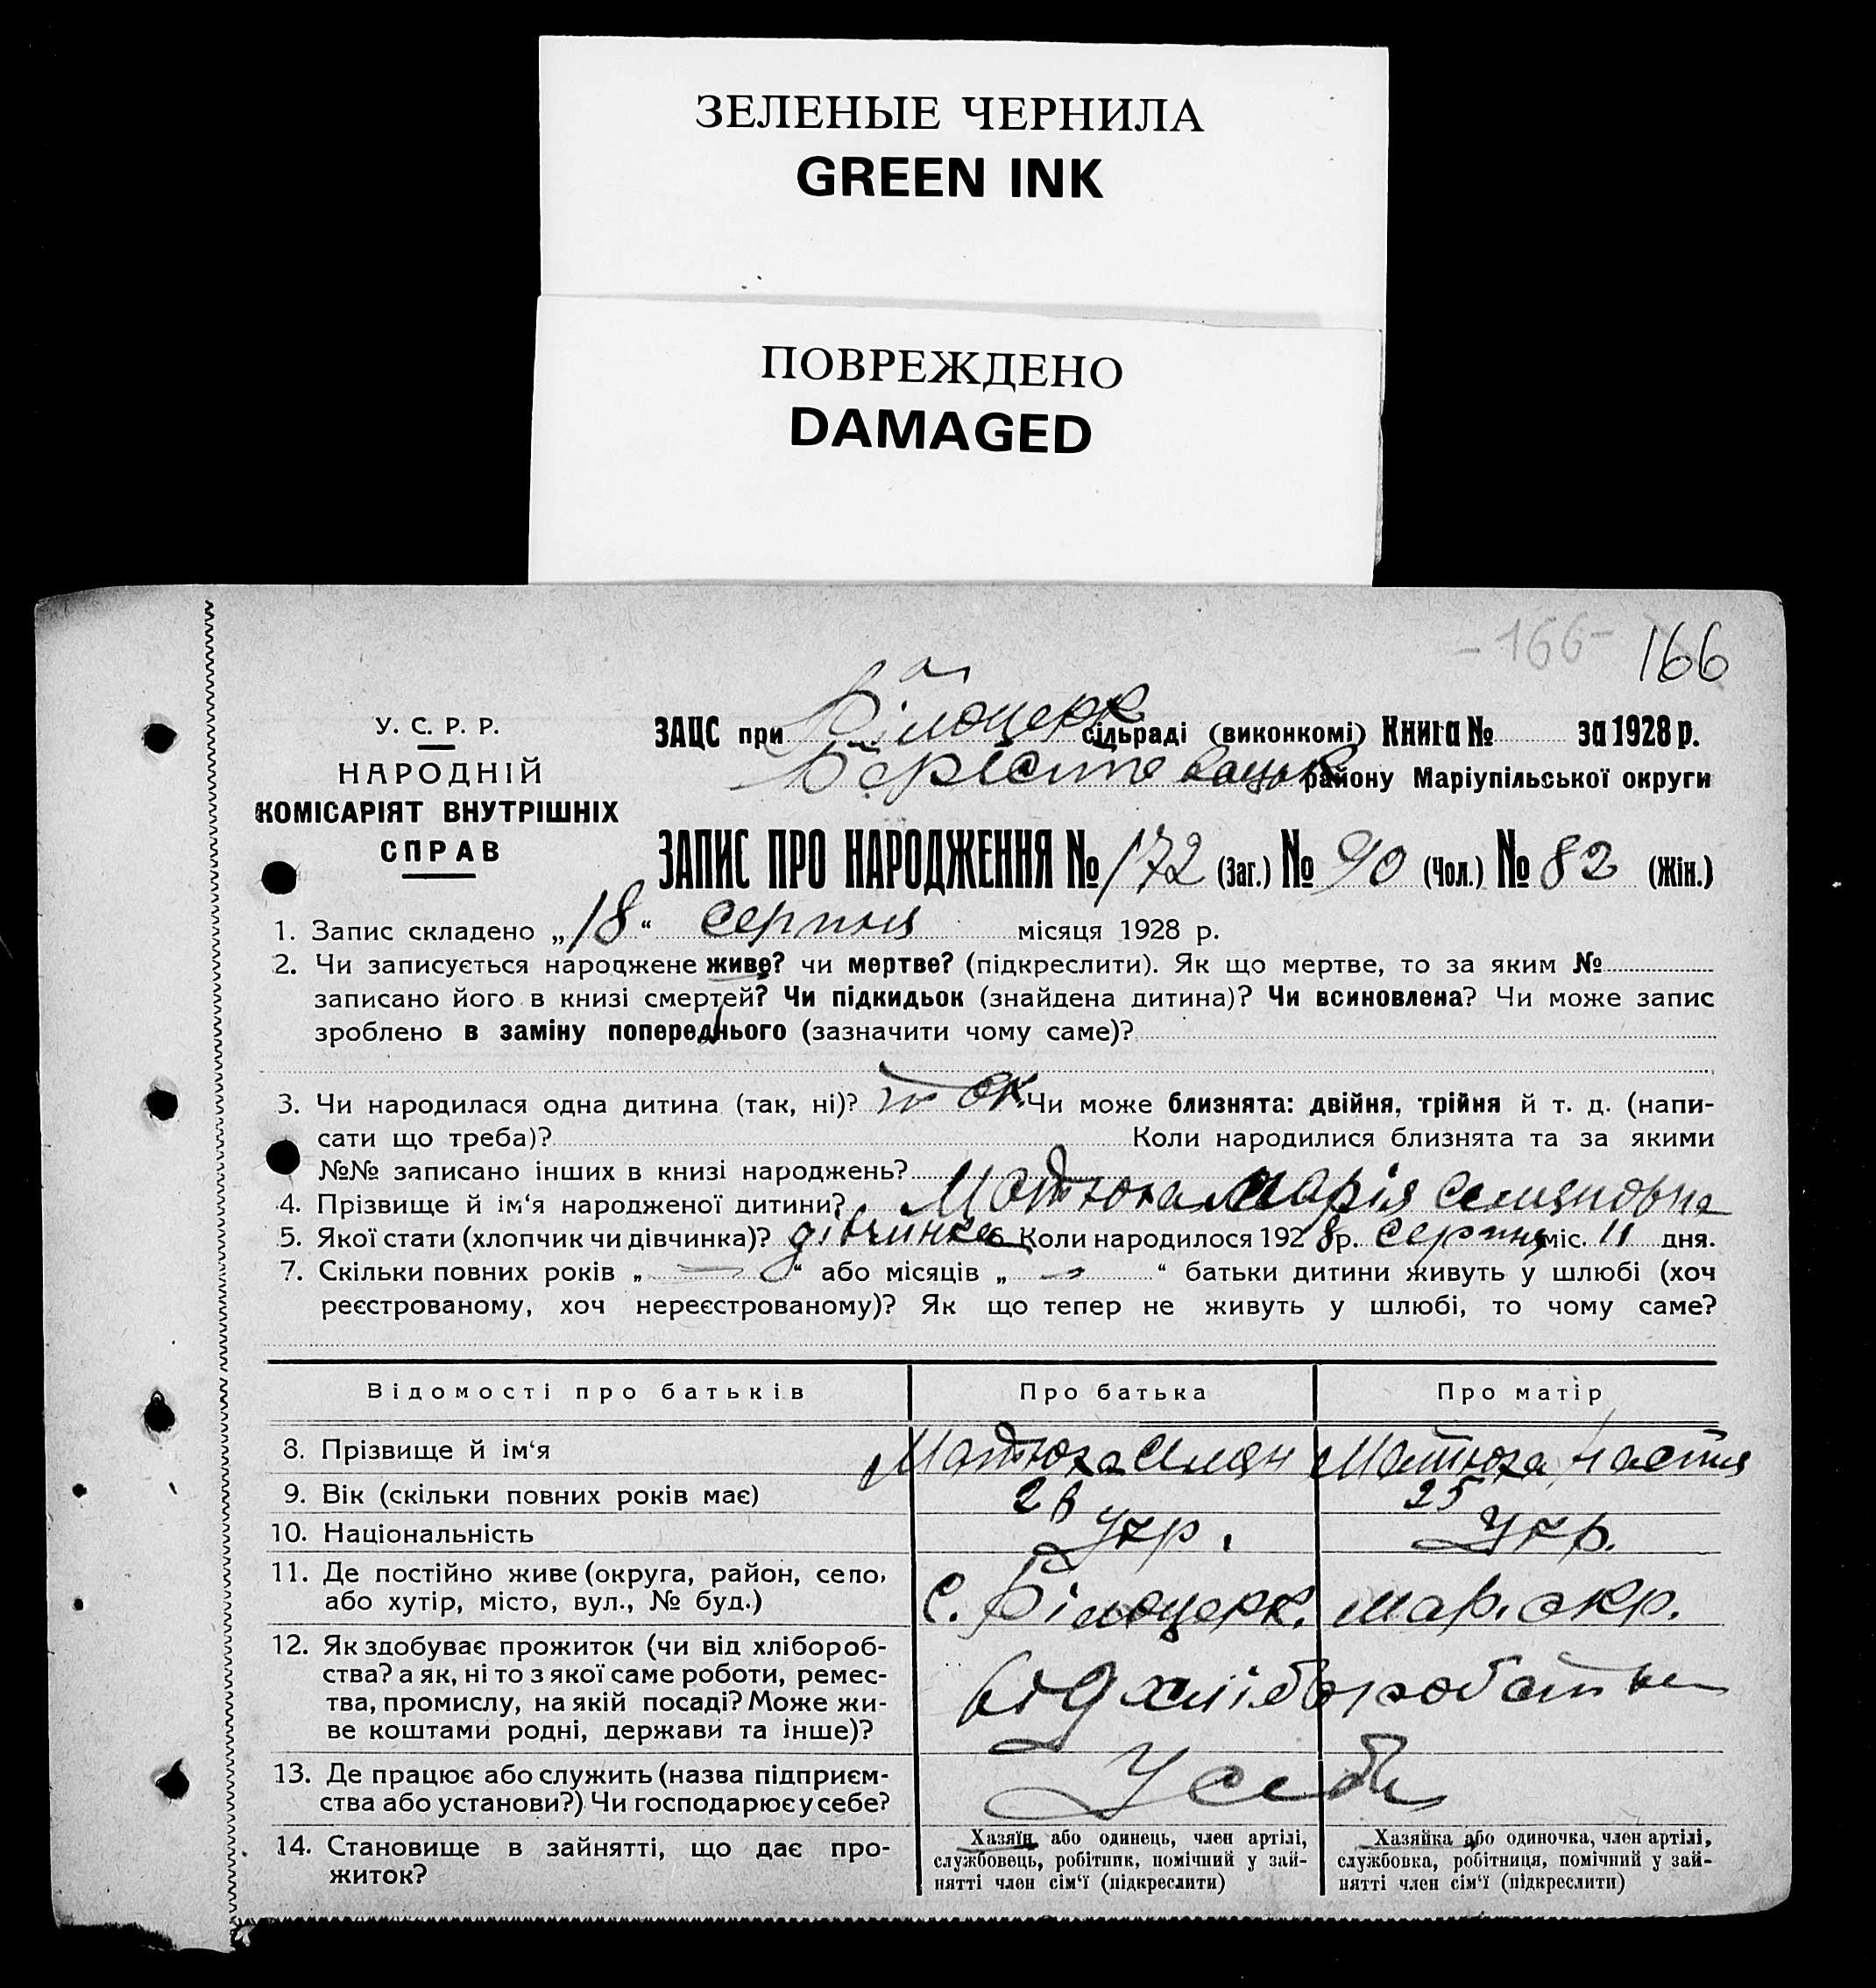 ЗЕЛЕНЫЕ ЧЕРНИЛА
GREEN INK
ПОВРЕЖДЕНО
DAMAGED
-166- 166
У. С. Р. Р.
НАРОДНІЙ
КОМІСАРІЯТ ВНУТРІШНІХ
СПРАВ
ЗАЦС при Білоцерк сільраді (виконкомі) Книга № за 1928 р.
району Маріупільської округи
ЗАПИС ПРО НАРОДЖЕННЯ № 172 (Заг.) № 90 (Чол.) № 82 (Жін.)
1. Запис складено „18“ серпня місяця 1928 р.
2. Чи записується народжене живе? чи мертве? (підкреслити). Як що мертве, то за яким №
записано його в книзі смертей? Чи підкидьок (знайдена дитина)? Чи всиновлена? Чи може запис
зроблено в заміну попереднього (зазначити чому саме)?
3. Чи народилася одна дитина (так, ні)? так Чи може близнята: двійня, трійня й т. д. (напи-
сати що треба)? Коли народилися близнята та за якими
№№ записано інших в книзі народжень?
4. Прізвище й ім‘я народженої дитини? Матюха Марія Семеновна
5. Якої стати (хлопчик чи дівчинка)? дівчинка 6. Коли народилося 1928 р. серпня міс. 11 дня.
7. Скільки повних років „ — “ або місяців „ — “ батьки дитини живуть у шлюбі (хоч
реєстрованому, хоч нереєстрованому)? Як що тепер не живуть у шлюбі, то чому саме?
Відомості про батьків Про батька Про матір
8. Прізвище й ім‘я Матюха Матюха Настя
9. Вік (скільки повних років має) 26 25
10. Національність Укр. Укр.
11. Де постійно живе (округа, район, село,
або хутір, місто, вул., № буд.) С. Білоцерк. Мар. окр.
12. Як здобуває прожиток (чи від хлібороб-
ства? а як, ні то з якої саме роботи, ремес-
тва, промислу, на якій посаді? Може жи-
ве коштами родні, держави та інше)? від хліборобства
13. Де працює або служить (назва підприєм-
ства або установи?) Чи господарює у себе? У себе
14. Становище в зайнятті, що дає про-
житок?
Хазяїн або одинець, член артілі,
службовець, робітник, помічний у зай-
нятті член сім‘ї (підкреслити)
Хазяйка або одиночка, член артілі,
службовка, робітниця, помічний у зай-
нятті член сім‘ї (підкреслити)